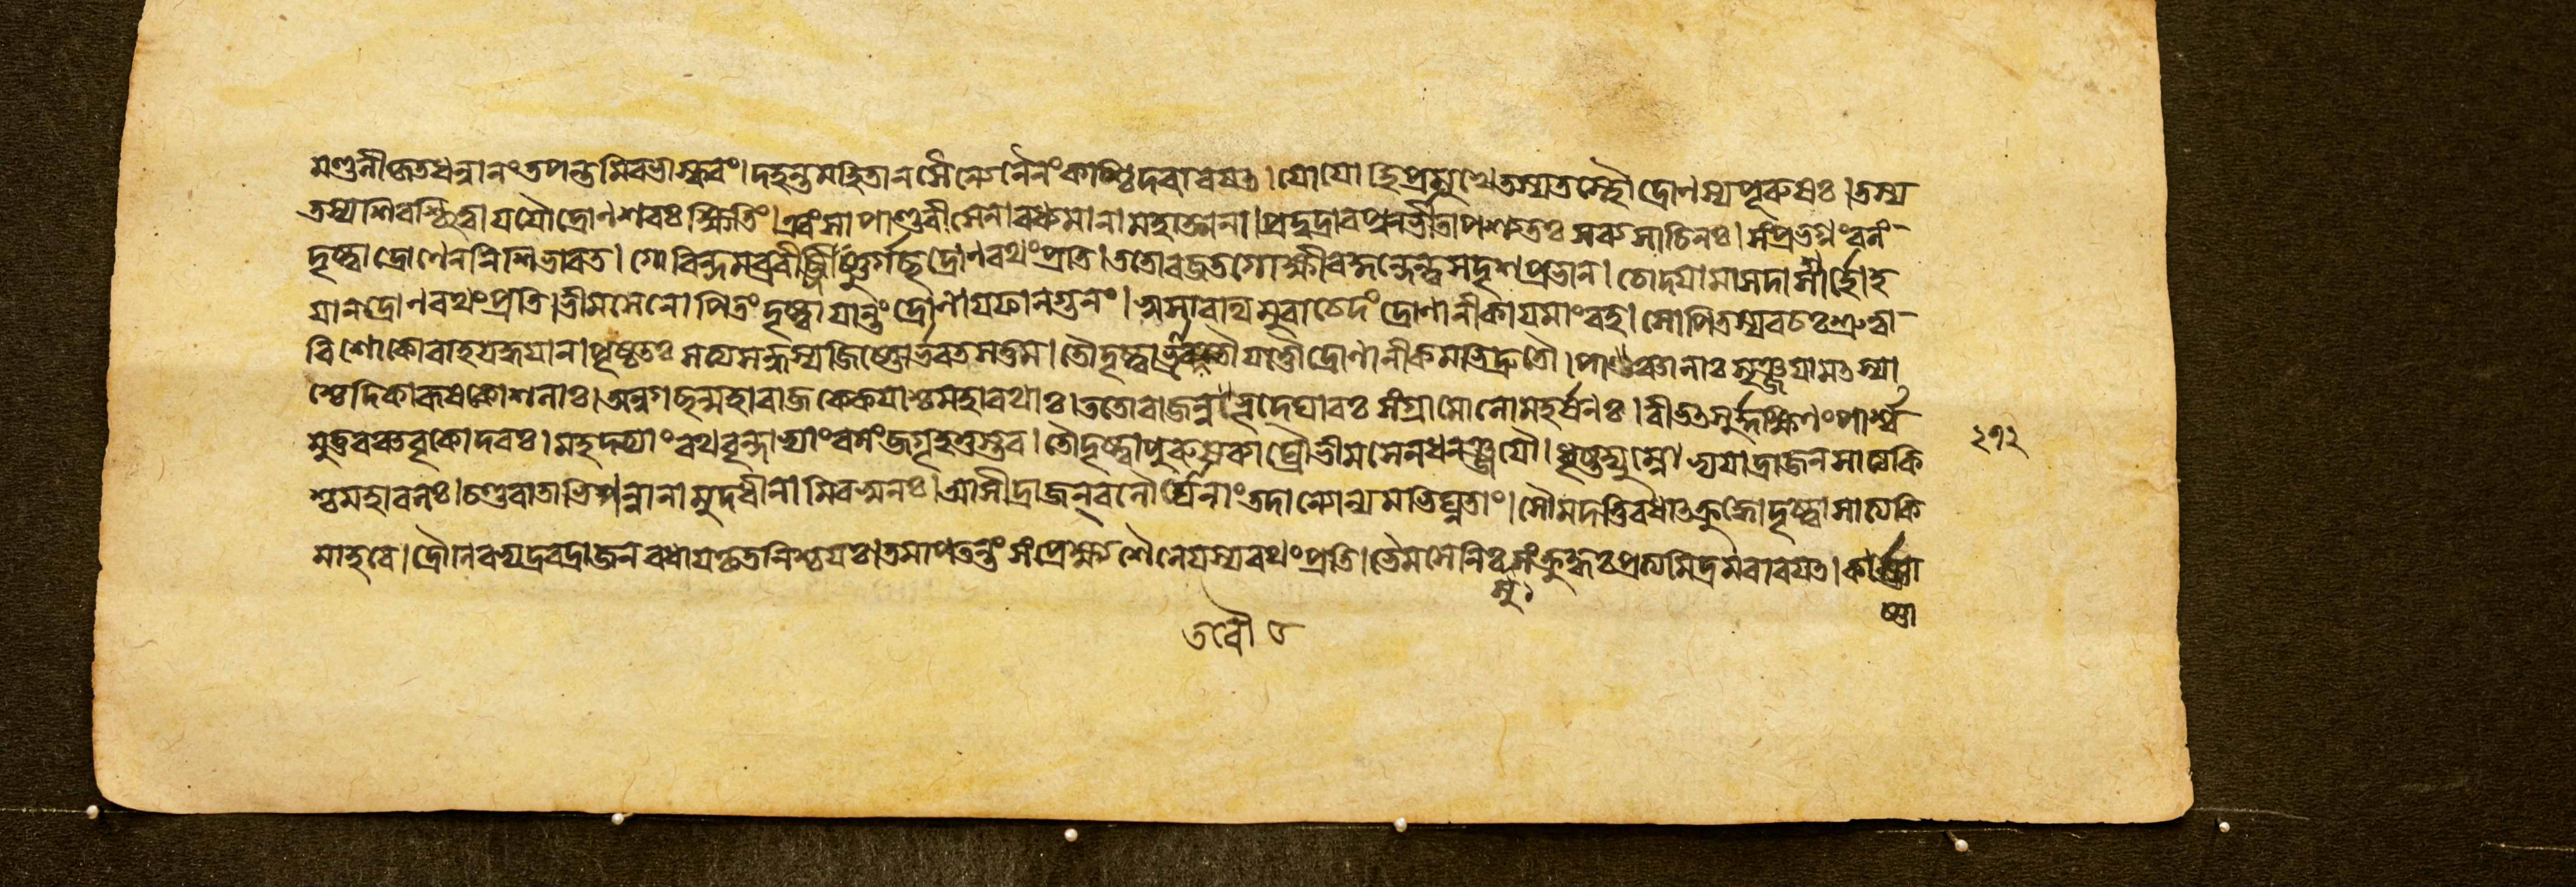 মণ্ডলীকৃতধন্বানং তপন্তমিবভাস্করং। দহন্তমহিতান সৈন্যেনৈনং কশ্চিদবারয়ত। যোযোহিপ্রমুখেতস্যতস্থৌদ্রোণস্যপুরুষঃ। তস্য
তস্যশিরশ্ছিত্বাযযৌদ্রোণশরঃক্ষিতিং। এবংসাপাণ্ডবীসেনাবধ্যমানামহাত্মনা। প্রদুদ্রাবপুনর্ভীতাপশ্যতঃ সব্যসাচিনঃ। সংপ্রভগ্নংবলং
দৃষ্ট্বাদ্রোণেননিশিভারত। গোবিন্দমব্রবীজ্জিষ্ণুর্গচ্ছদ্রোণরথংপ্রতি। ততোরজতগোক্ষীরকুন্দেন্দুসদৃশপ্রভান। চোদয়ামাসদাশার্হোহ
যানদ্রোণরথংপ্রতি। ভীমসেনোপিতংদৃষ্ট্বাযান্তংদ্রোণায়ফাল্গুনং। স্বসারথিমুবাচেদংদ্রোণানীকায়মাংবহ। সোপিতস্যবচঃশ্রুত্বা
বিশোকোবাহয়দ্ধয়ান। পৃষ্ঠতঃ সত্যসন্ধস্যজিষ্ণোর্ভরতসত্তম। তৌদৃষ্ট্বাভ্রাতরৌযাত্তৌদ্রোণানীকমভিদ্রুতৌ। পাঞ্চালাঃসৃঞ্জয়ামৎস্যা
শ্চেদিকারূষকোশলাঃ। অন্বগচ্ছন্মহারাজকেকয়াশ্চমহারথাঃ। ততোরাজন্নভূদ্ঘোরঃ সংগ্রামোলোমহর্ষণঃ। বীভৎসুর্দ্দক্ষিণংপার্শ্ব
মুত্তরঞ্চবৃকোদরঃ। মহদ্ভ্যাংরথবৃন্দাভ্যাংবলংজগৃহতুস্তব। তৌদৃষ্ট্বাপুরুষব্যাঘ্রৌভীমসেনধনঞ্জয়ৌ। ধৃষ্টদ্যুম্নোভ্যয়াদ্রাজনসাত্যকি
২৭২
শ্চমহাবলঃ। চণ্ডবাতাভিপন্নানামুদধীনামিবস্বনঃ। আসীদ্রাজনবলৌঘানাংতদান্যোন্যমভিঘ্নতাং। সৌমদত্তিবধাৎক্রুদ্ধোদৃষ্ট্বাসাত্যকি
মাহবে। দ্রৌণিরভ্যদ্রবদ্রাজনবধায়কৃতনিশ্চয়ঃ। তমাপতন্তংসংপ্রেক্ষ্যশৈনেয়স্যরথংপ্রতি। ভৈমসেনিঃসুসংক্রুদ্ধঃপ্রত্যমিত্রমবারয়ত। কার্ষ্ণা